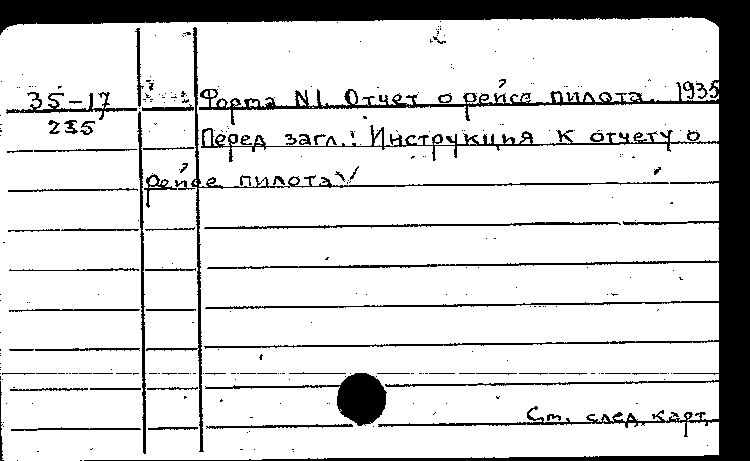 2
35-17
235
Форма N1. Отчет о рейсе пилота. 1935
Перед загл.: Инструкция к отчету о
рейсе пилота
См. след. карт.